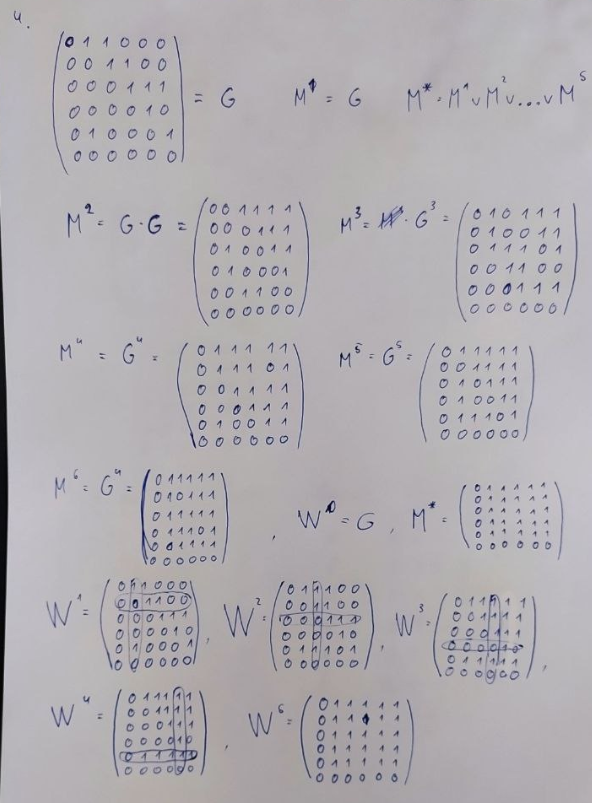 4.
0 1 1 0 0 0
0 0 1 1 0 0
0 0 0 1 1 1
0 0 0 0 1 0
0 1 0 0 0 1
0 0 0 0 0 0
= G M¹ = G M* = M¹ ∪ M² ∪ ... ∪ M⁵
M² = G · G =
0 0 1 1 1 1
0 0 0 1 1 1
0 1 0 0 1 1
0 1 0 0 0 1
0 0 1 1 0 0
0 0 0 0 0 0
M³ = · G³ =
0 1 0 1 1 1
0 1 0 0 1 1
0 1 1 1 0 1
0 0 1 1 0 0
0 0 0 1 1 1
0 0 0 0 0 0
M⁴ = G⁴ =
0 1 1 1 1 1
0 1 1 1 0 1
0 0 1 1 1 1
0 0 0 1 1 1
0 1 0 0 1 1
0 0 0 0 0 0
M⁵ = G⁵ =
0 1 1 1 1 1
0 0 1 1 1 1
0 1 0 1 1 1
0 1 0 0 1 1
0 1 1 1 0 1
0 0 0 0 0 0
M⁶ = G⁴ =
0 1 1 1 1 1
0 1 0 1 1 1
0 1 1 1 1 1
0 1 1 1 0 1
0 0 1 1 1 1
0 0 0 0 0 0
, W⁰ = G , M* =
0 1 1 1 1 1
0 1 1 1 1 1
0 1 1 1 1 1
0 1 1 1 1 1
0 1 1 1 1 1
0 0 0 0 0 0
W¹ =
0 1 1 0 0 0
0 0 1 1 0 0
0 0 0 1 1 1
0 0 0 0 1 0
0 1 0 0 0 1
0 0 0 0 0 0
, W² =
0 0 1 1 0 0
0 0 1 1 0 0
0 0 0 1 1 1
0 0 0 0 1 0
0 0 0 0 0 0
, W³ =
0 1 1 1 1 1
0 0 1 1 1 1
0 0 0 1 1 1
0 0 0 0 1 0
0 1 1 1 1 1
0 0 0 0 0 0
,
W⁴ =
0 1 1 1 1 1
0 0 1 1 1 1
0 0 0 1 1 1
0 0 0 0 1 0
0 1 1 1 1 1
0 0 0 0 0 0
, W⁶ =
0 1 1 1 1 1
0 1 1 1 1 1
0 1 1 1 1 1
0 1 1 1 1 1
0 1 1 1 1 1
0 0 0 0 0 0